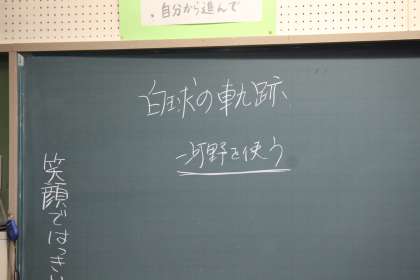 ・自分から進んで
白球の軌跡
河野を使う
笑顔ではっきり